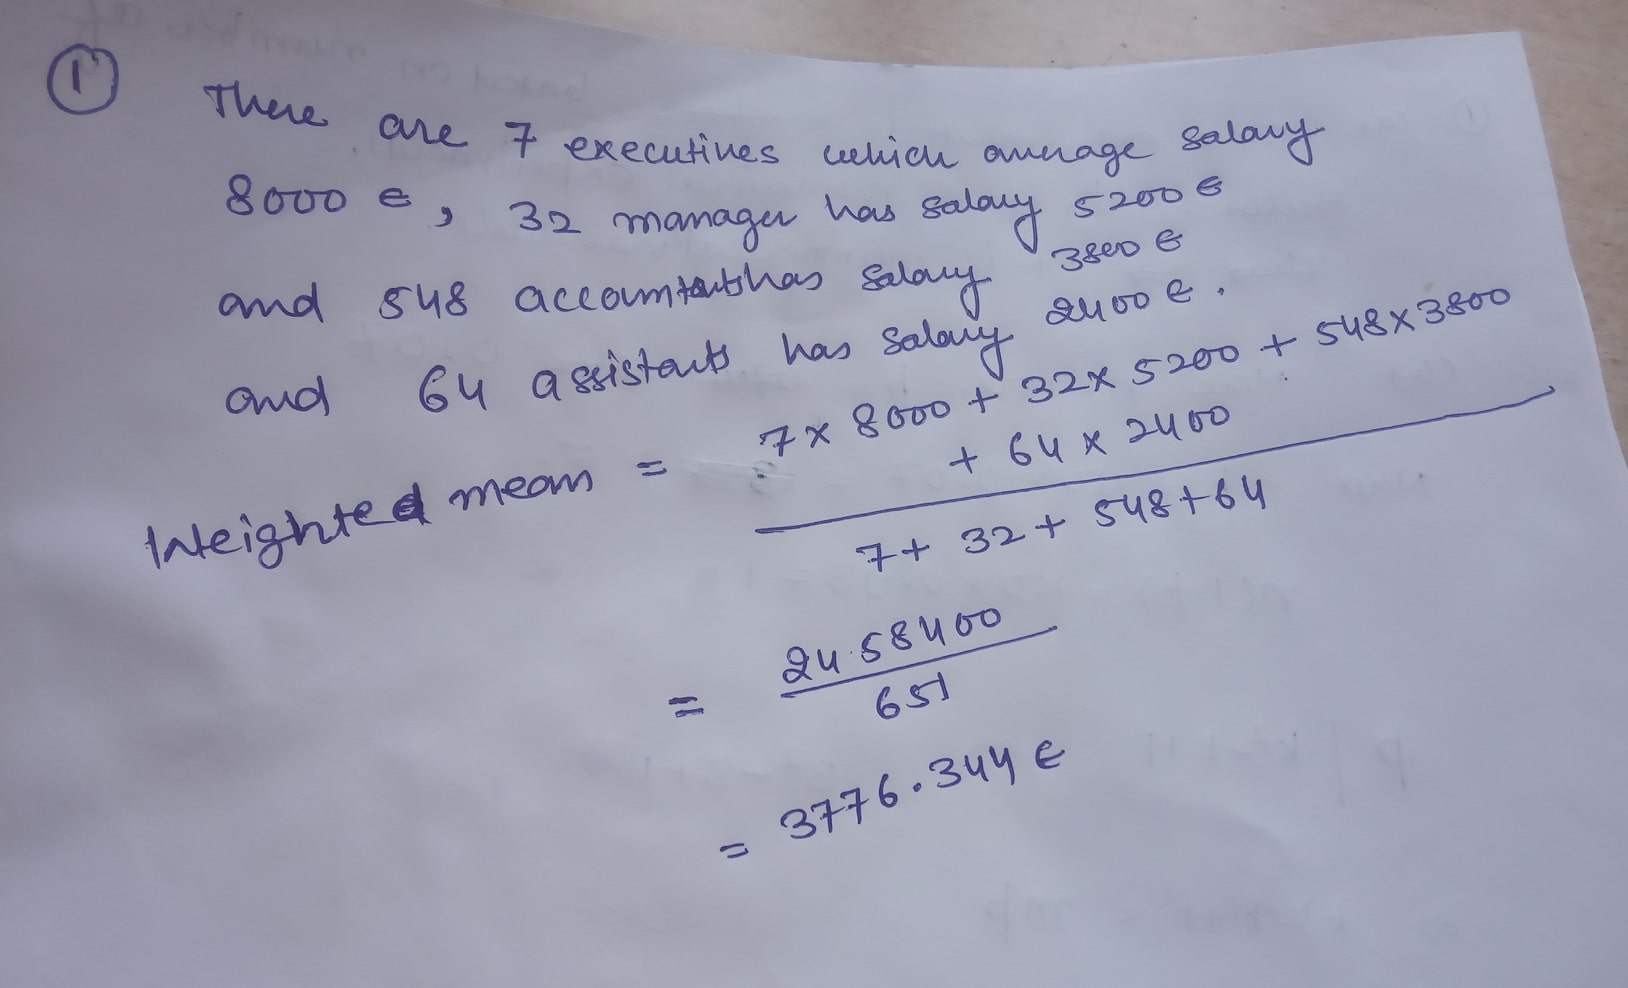 1
There are 7 executives which average salary
8000 €, 32 manager has salary 5200 €
and 548 accountants has salary 3800 €
and 64 assistants has salary 2400 €.
Weighted mean = 7 x 8000 + 32 x 5200 + 548 x 3800
+ 64 x 2400
7 + 32 + 548 + 64
= 2458400
651
= 3776.344 €